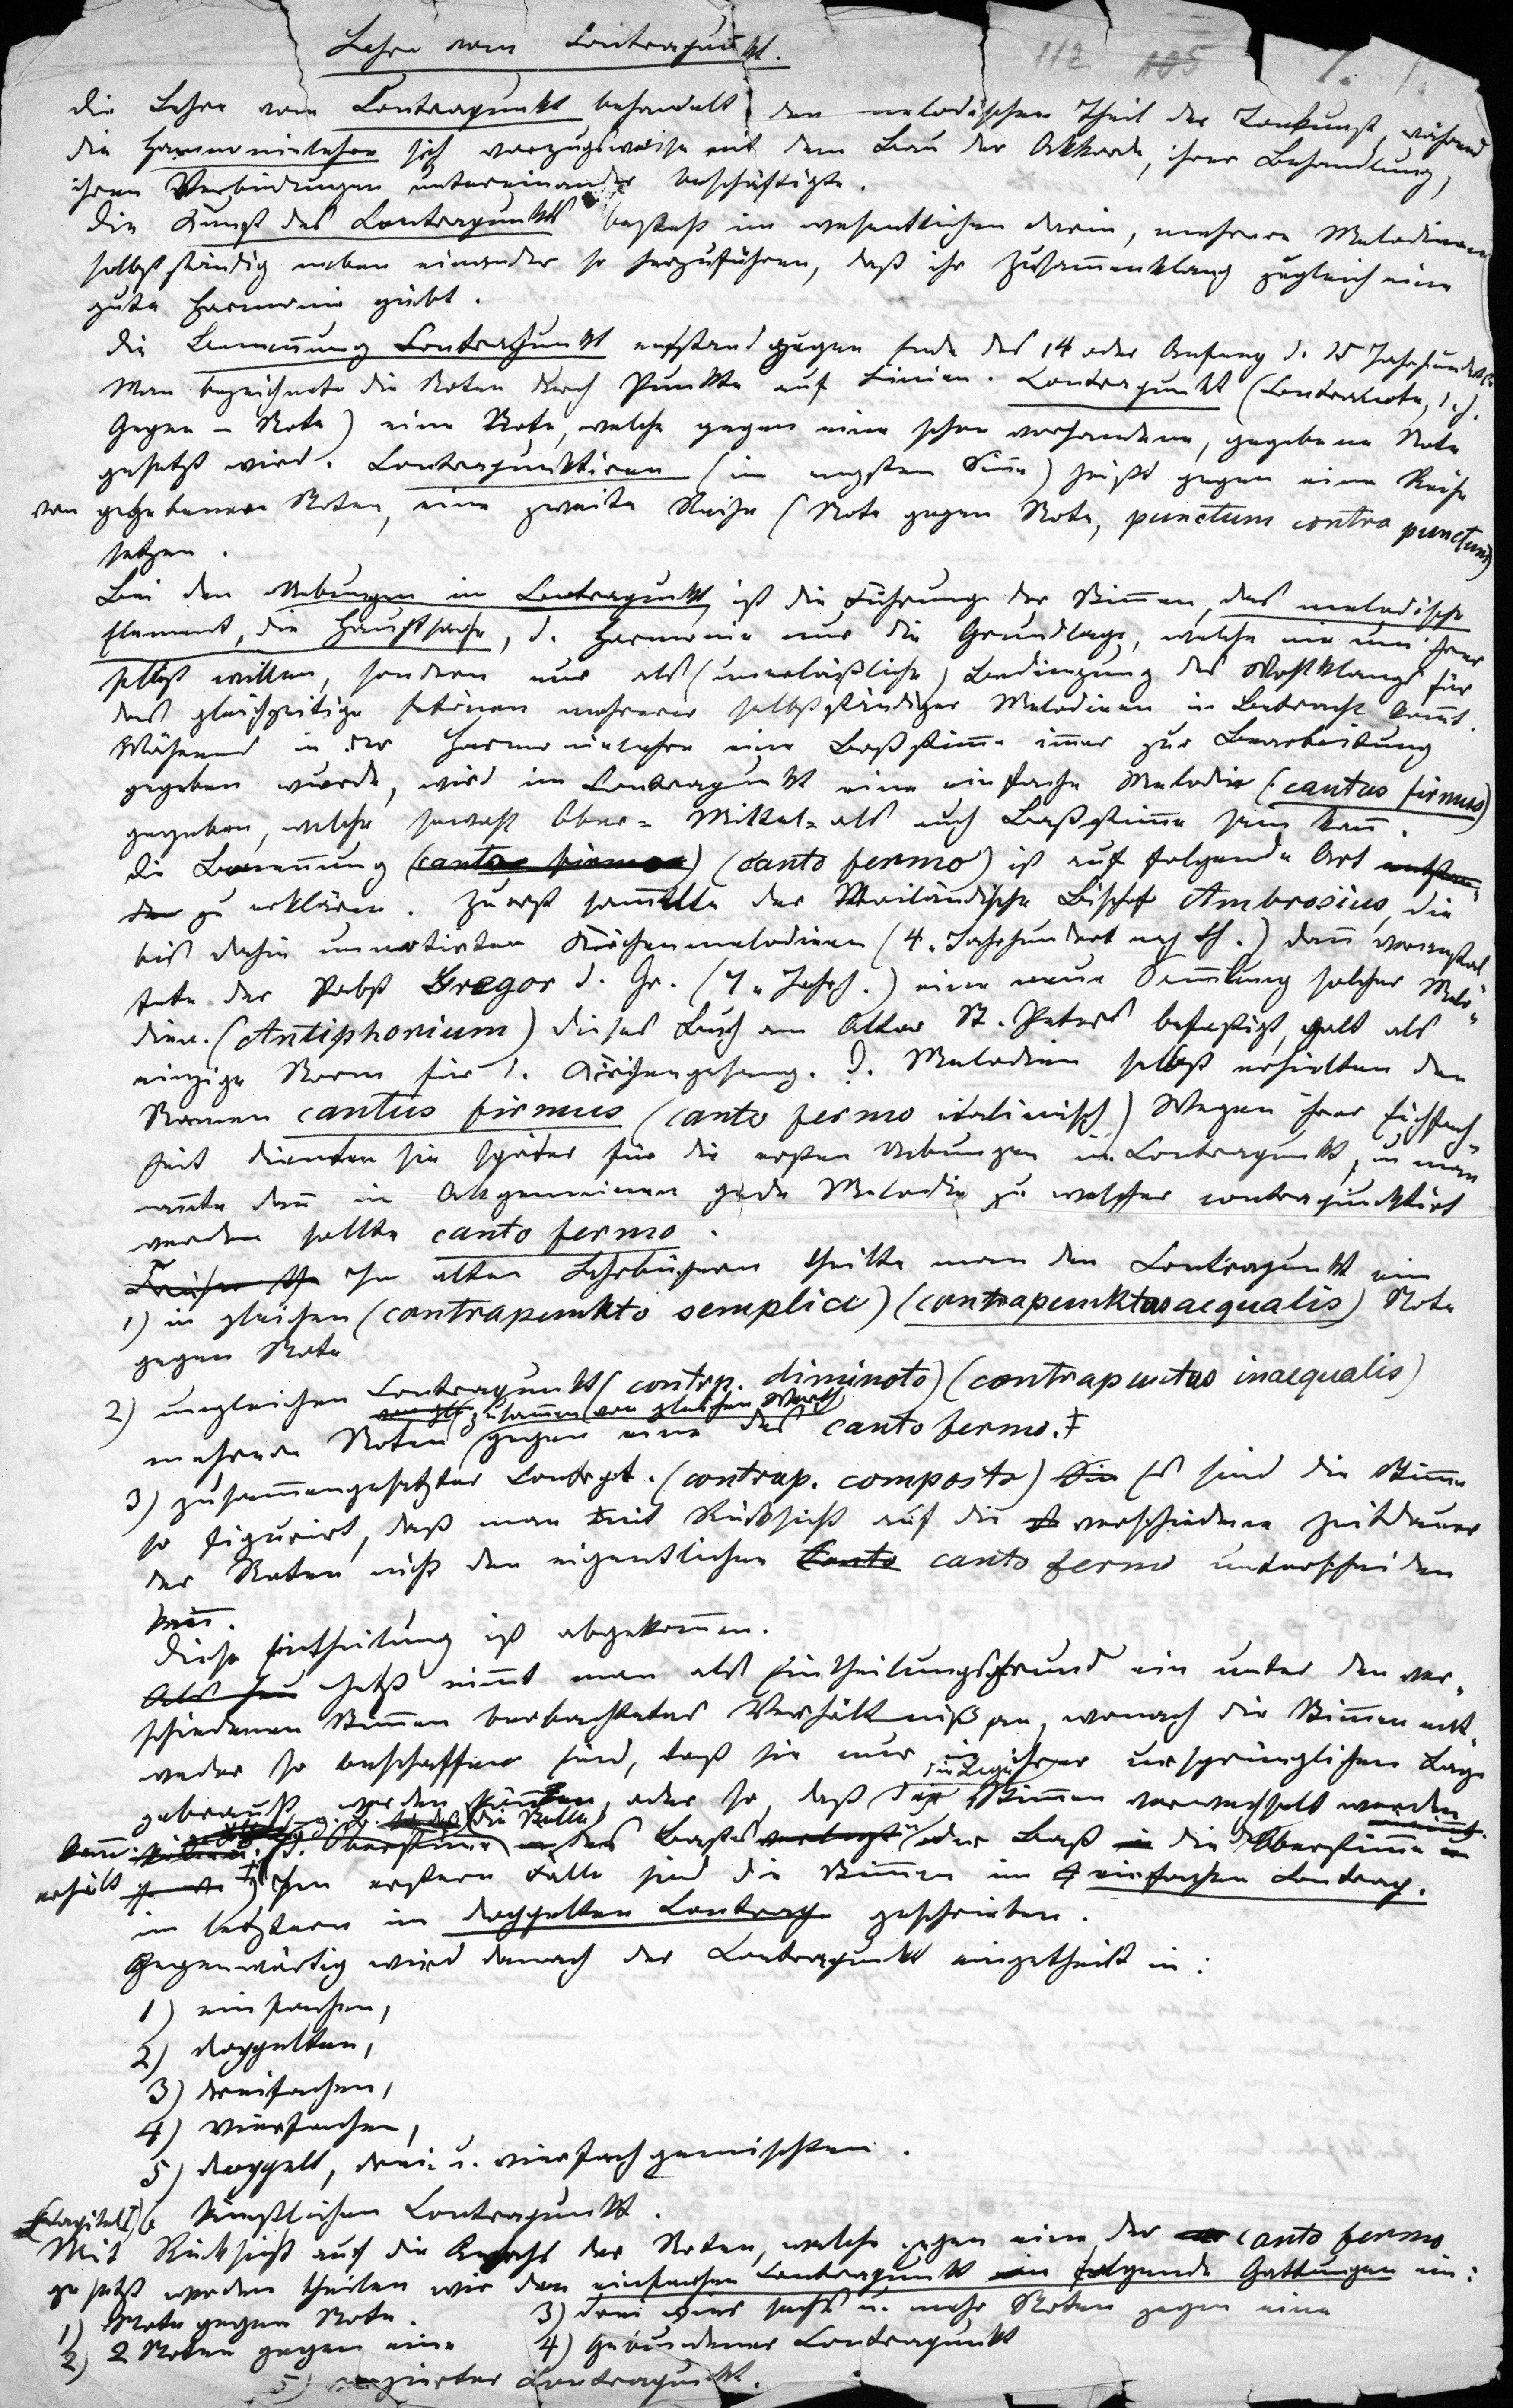 Lehre vom Contrapunkt.
112 105 1.
Die Lehre vom Contrapunkt behandelt den melodischen Theil der Tonkunst, während
die Harmonielehre sich vorzugsweise mit dem Bau der Akkorde, ihrer Behandlung,
ihren Verbindungen untereinander beschäftigte.
Die Kunst des Contrapunkts besteht im wesentlichen darin, mehrere Melodieen
selbstständig neben einander so herzuführen, daß ihr Zusam̅enklang zugleich eine
gute Harmonie giebt.
Die Benen̅ung Contrapunkt entstand gegen Ende des 14 oder Anfang d. 15 Jahrhunderts
Man bezeichnete die Noten durch Punkte auf Linien. Contrapunkt (Contranote, d. h.
Gegen-Note) eine Note, welche gegen eine schon vorhandene, gegebene Note
gesetzt wird. Contrapunktiren (im engsten Sin̅e) heißt gegen eine Reihe
von gegebenen Noten, eine zweite Reihe (Note gegen Note, punctum contra punctum)
setzen.
Bei den Uebungen im Contrapunkt, ist die Führung der Stim̅en, das melodische
Element, die Hauptsache, d. Harmonie nur die Grundlage, welche nie um ihrer
selbst willen, sondern nur als (unerläßliche) Bedingung des Wohlklangs für
das gleichzeitige Ertönen mehrerer selbstständiger Melodieen in Betracht kom̅t.
Während in der Harmonielehre eine Baßstim̅e im̅er zur Bearbeitung
gegeben wurde, wird im Contrapunkt eine einfache Melodie (cantus firmus)
gegeben, welche sowohl Ober= Mittel= als auch Baßstim̅e sein kan̅.
Die Benen̅ung (cantus firmus) (canto fermo) ist auf folgende Art entstan=
den zu erklären. Zuerst sam̅elte der Mailändische Bischof Ambrosius, die
bis dahin unnotirten Kirchenmelodieen (4. Jahrhundert nach Ch.) dan̅ veranstal=
tete der Pabst Gregor d. Gr. (7. Jahrh.) eine neue Sam̅lung solcher Melo=
dieen. (Antiphonium) Dieses Buch am Altar St. Peters befestigt, galt als
einzige Norm für d. Kirchengesang. D. Melodieen selbst erhielten den
Namen cantus firmus (canto fermo italienisch) Wegen ihrer Einfach=
heit dienten sie später für die ersten Uebungen im Contrapunkt, u man
nan̅te dan̅ im Allgemeinen jede Melodie zu welcher contrapunktirt
werden sollte canto fermo.
In alten Lehrbüchern theilte man den Contrapunkt ein
1) in gleichen (contrapunkto semplice) (contrapunktus aequalis) Note
gegen Note
2) ungleichen Contrapunkt (contrp. diminoto) (contrapunctus inaequalis)
zusam̅en von gleichem Werth
mehrere Noten gegen eine des canto fermo.‡
3) zusam̅engesetzter Contrpt. (contrap. composto) Es sind die Stim̅en
so figurirt, daß man mit Rücksicht auf die verschiedene Zeitdauer
der Noten nicht den eigentlichen Canto canto fermo unterscheiden
kan̅.
Diese Eintheilung ist abgekom̅en.
Jetzt nim̅t man als Eintheilungsgrund ein unter den ver=
schiedenen Stim̅en beobachtetes Verhältniß an, wonach die Stim̅en ent=
weder so beschaffen sind, daß sie nur in ihrer ursprünglichen Lage
gebraucht werden kön̅en, oder so, daß die Stim̅en verwechselt werden
kan̅. d. Oberstim̅e die Stelle des Basses oder Baß die Oberstim̅e
erhält Im ersteren Falle sind die Stim̅en im einfachen Contrap.
im letztern im doppelten Contrap. geschrieben.
Gegenwärtig wird danach der Contrapunkt eingetheilt in:
1) einfachen,
2) doppelten,
3) dreifachen,
4) vierfachen,
5) doppelt, drei- u. vierfach gemischten.
Kapitel I) 6 künstlichen Contrapunkt.
Mit Rücksicht auf die Anzahl der Noten, welche gegen eine des canto fermo
gesetzt werden theilen wir den einfachen Contrapunkt in folgende Gattungen ein:
1) Note gegen Note. 3) drei vier sechs u. mehr Noten gegen eine
2) 2 Noten gegen eine 4) Gebundener Contrapunkt
5) verzierter Contrapunkt.